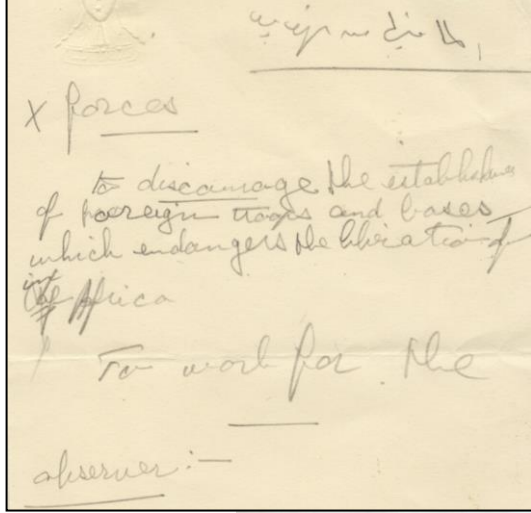 X forces
to discourage the establishment
of foreign troops and bases
which endangers the liberation of
Africa
To work for the
observer :-